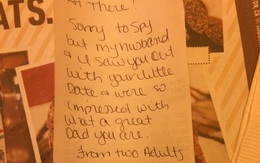 ATS.
Hi There!
Sorry to Spy
but my husband
& I saw you out
with your little
Date & were so
impressed with
what a great
Dad you are.
From two Adults